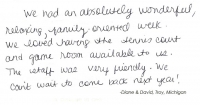 We had an absolutely wonderful,
relaxing, family oriented week.
We loved having the tennis court
and game room available to us.
The staff was very friendly. We
can't wait to come back next year!
-Diane & David, Troy, Michigan